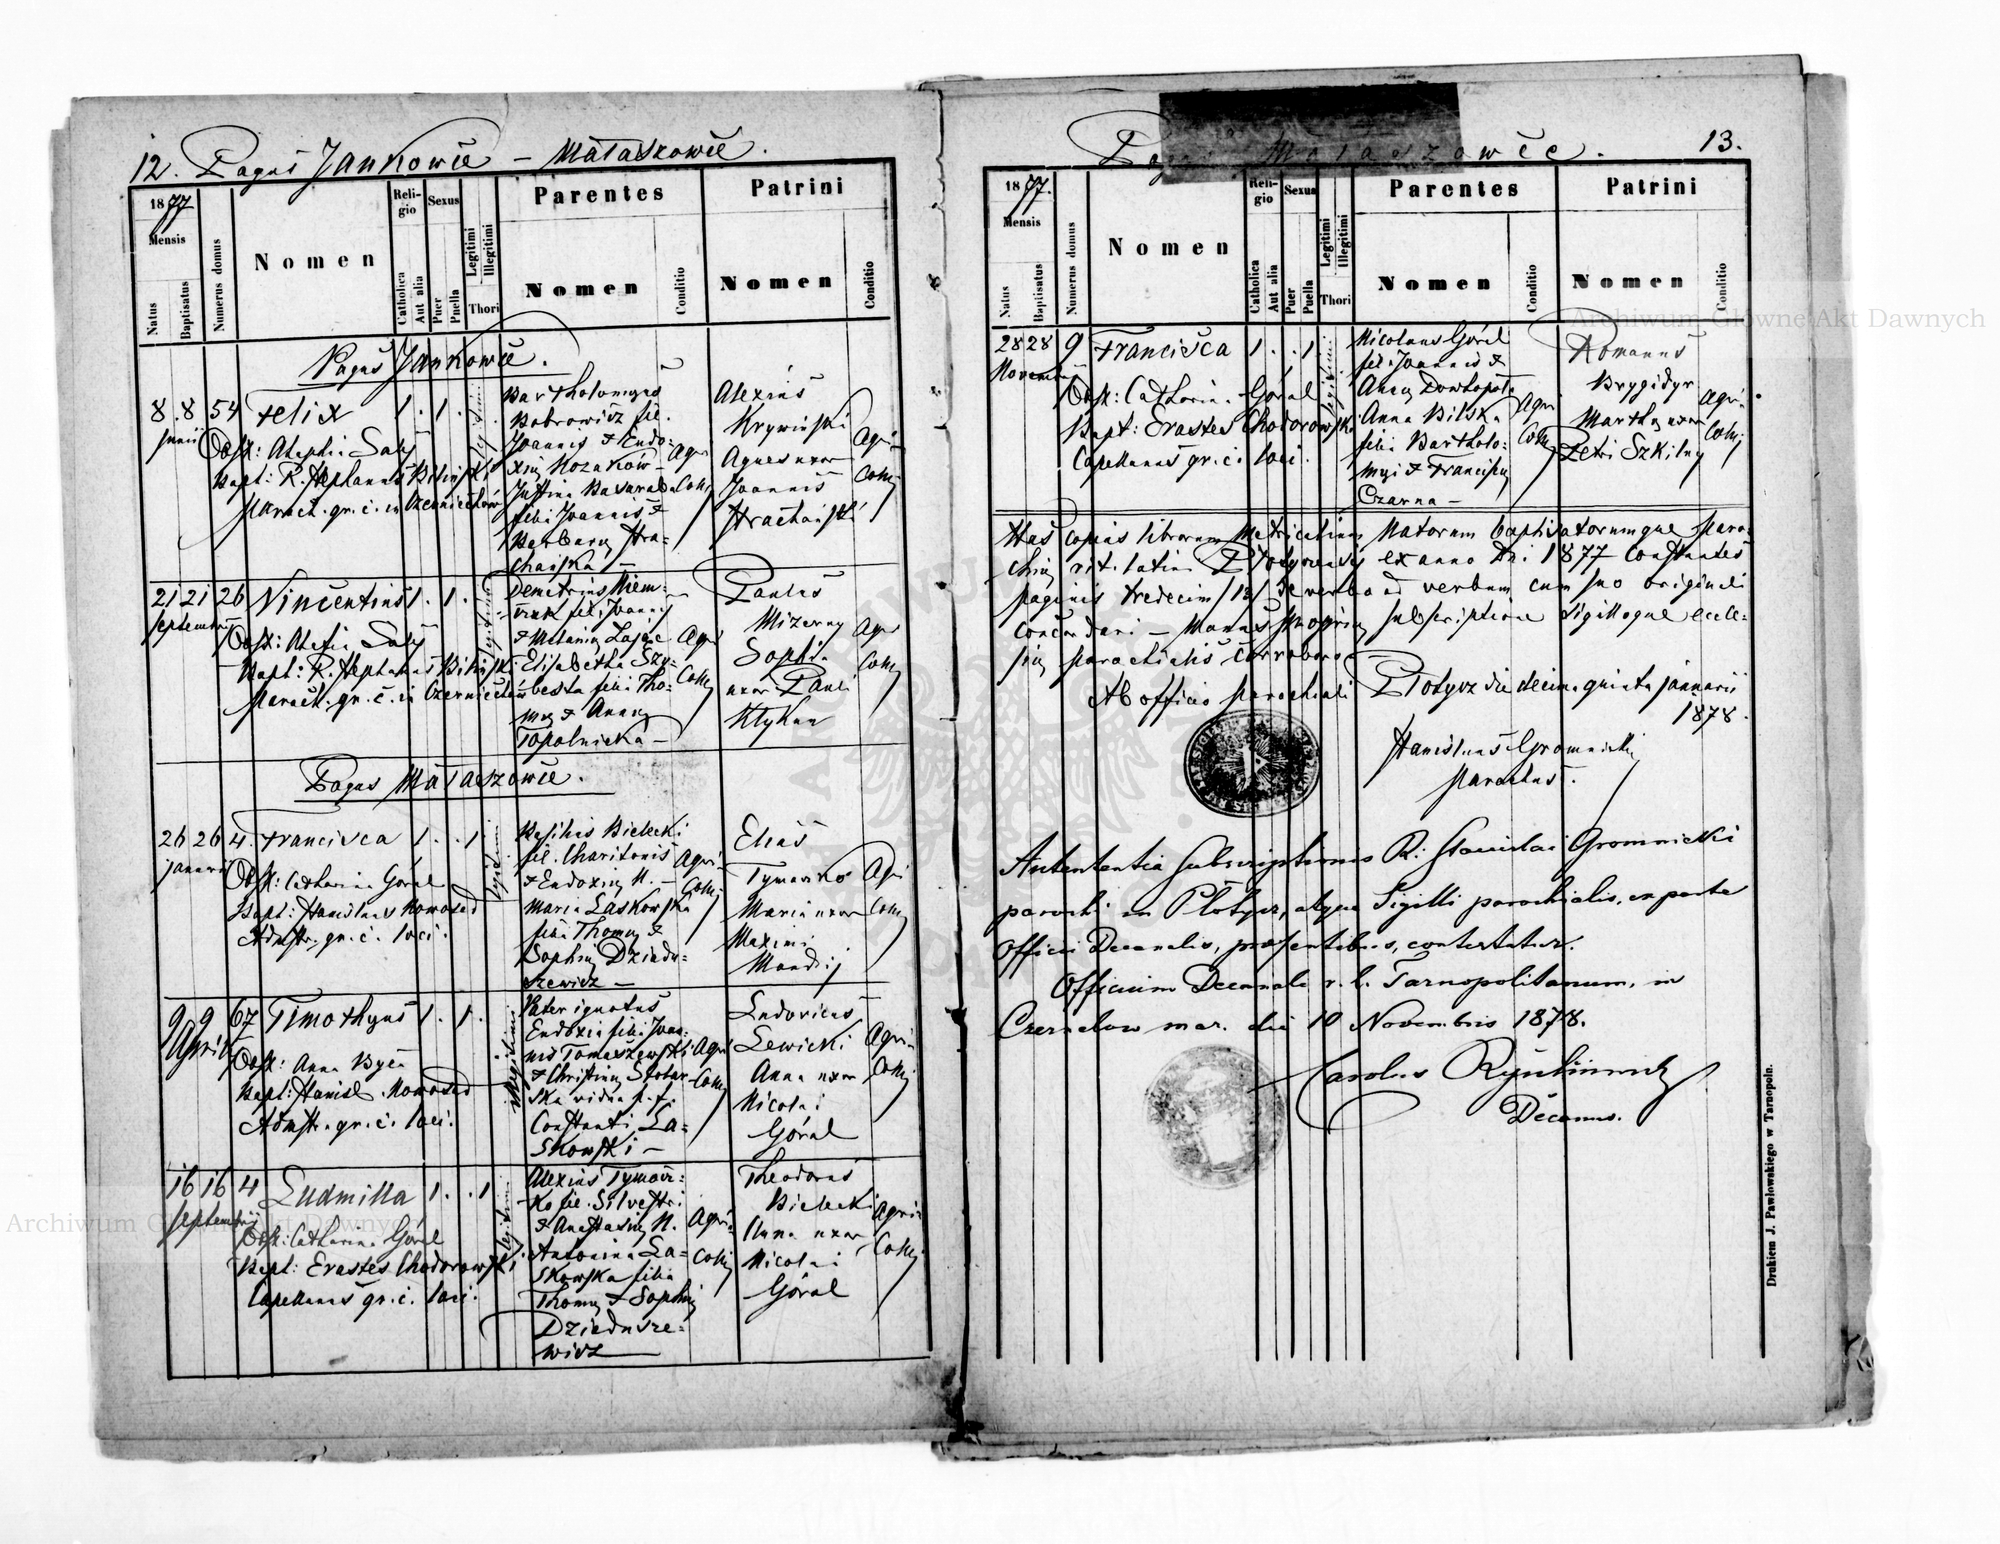 12. Pagus Jankowce – Mataszowce.
1877
Mensis
Natus
Baptisatus
Numerus domus
Nomen
Religio
Catholica
Aut alia
Sexus
Puer
Puella
Legitimi
Illegitimi
Thori
Parentes
Nomen
Conditio
Patrini
Nomen
Conditio
Pagus Jankowce.
8. 8 54 Felix 1. 1.
Junii
Obst:
Bapt: R. Stephanus Biliński
Paroch. gr. c. in Czerniechów
Bartholomeus
Bobrowicz fil.
Joannis & Eudo-
xiæ Kozaków –
Justina Basaraba
filia Joannis &
Barbaræ Stra-
chańska –
Agri
Colæ
Alexius
Krywiński
Agnes uxor
Joannis
Strachański
Agri-
Colæ
21 21 26 Vincentius 1. 1.
Septembris
Obst:
Bapt: R. Stephanus Biliński
Paroch. gr. c. in Czerniechów
Demetrius
fil. Joannis
& Melaniæ
Elisabetha Szy-
besta filia Tho-
mæ & Annæ
Topolnicka –
Agri
Colæ
Paulus
Mizerny
Sophia
uxor Pauli
Agri
Colæ
Pagus Mataszowce.
26 26 4. Francisca 1. . 1
Januarii
Obst: Catharina Góral
Bapt: Stanislaus Nowosad
Admstr. gr. c. loci.
Basilius Bielecki
fil. Charitonis
& Eudoxiæ N. –
Maria Laskowska
filia Thomæ &
Sophiæ Dziedu-
szewicz –
Agri-
Colæ
Elias
Tymoczko
Maria uxor
Maximi
Mandzij
Agri
Colæ
9 9 67 Timotheus 1. 1.
Aprilis
Obst: Anna
Bapt: Stanisl. Nowosad
Admstr. gr. c. loci.
Illegitimi
Pater ignotus
Eudoxia filia Joan-
nis Tomaszewski
& Christinæ
vidua p. f.
Constanti La-
skowski –
Agri
Colæ
Ludovicus
Lewicki
Anna uxor
Nicolai
Góral
Agri-
Colæ
16 16 4 Ludmilla 1. . 1
Septembris
Obst: Catharina Góral
Bapt: Erastes Chodorowski
Capellanus gr. c. loci.
Alexius Tymocz-
ko fil. Silvestri
& Anastasiæ N.
Antonina La-
skowska filia
Thomæ & Sophiæ
Dziedusze-
wicz
Agri-
Colæ
Theodorus
Bielecki
Anna uxor
Nicolai
Góral
Agri-
Colæ
Mataszowce. 13.
1877.
Mensis
Natus
Baptisatus
Numerus domus
Nomen
Religio
Catholica
Aut alia
Sexus
Puer
Puella
Legitimi
Illegitimi
Thori
Parentes
Nomen
Conditio
Patrini
Nomen
Conditio
28 28 9 Francisca 1. . 1
Novembris
Obst: Catharina Góral
Bapt: Erastes Chodorowski
Capellanus gr. c. loci.
Nicolaus Góral
fil. Joannis &
Annæ
Anna Bilska
filia Bartholo-
mæi & Franciscæ
Czarna –
Agri
Colæ
Romanus
Brygidyr
Martha uxor
Petri Szkilny
Agri-
Colæ
Has copias librorum Metricalium Natorum baptisatorumque Paro-
chiæ rit. latini Płotycensis ex anno Dni 1877 constantes
paginis tredecim /13/ de verbo ad verbum cum suo originali
concordari – Manus propriæ subscriptione Sigilloque eccle-
siæ parochialis corroboro
Ab officio parochiali Płotycz die decima quinta januarii
1878.
Stanislaus Gromnicki
parochus.
Autententia Subscriptionis R: Stanislai Gromnicki
parochi in Płotycz, atque Sigilli parochialis, ex parte
Officii Decanalis, præsentibus, contestatur.
Officium Decanale r. l. Tarnopolitanum, in
Czernelow mar. die 10 Novembris 1878.
Carolus
Decanus.
Drukiem J. Pawłowskiego w Tarnopolu.
Archiwum Główne Akt Dawnych
Archiwum Główne Akt Dawnych